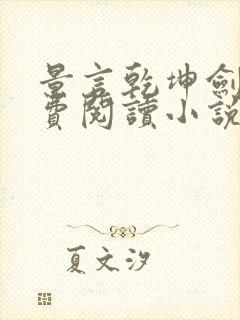 景言乾坤劍
費閱讀小說
夏文汐